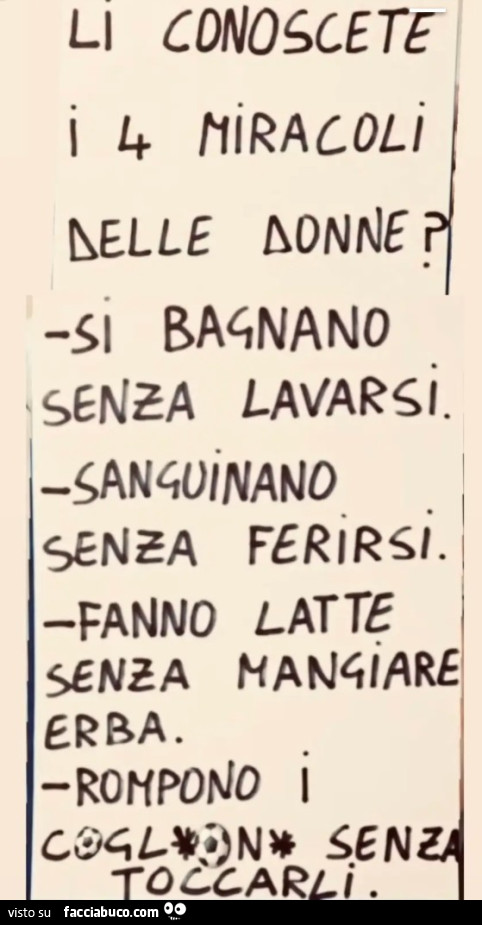 LI CONOSCETE
I 4 MIRACOLI
DELLE DONNE?
-SI BAGNANO
SENZA LAVARSI.
-SANGUINANO
SENZA FERIRSI.
-FANNO LATTE
SENZA MANGIARE
ERBA.
-ROMPONO I
C⚽GL*⚽N* SENZA
TOCCARLI.
visto su facciabuco.com